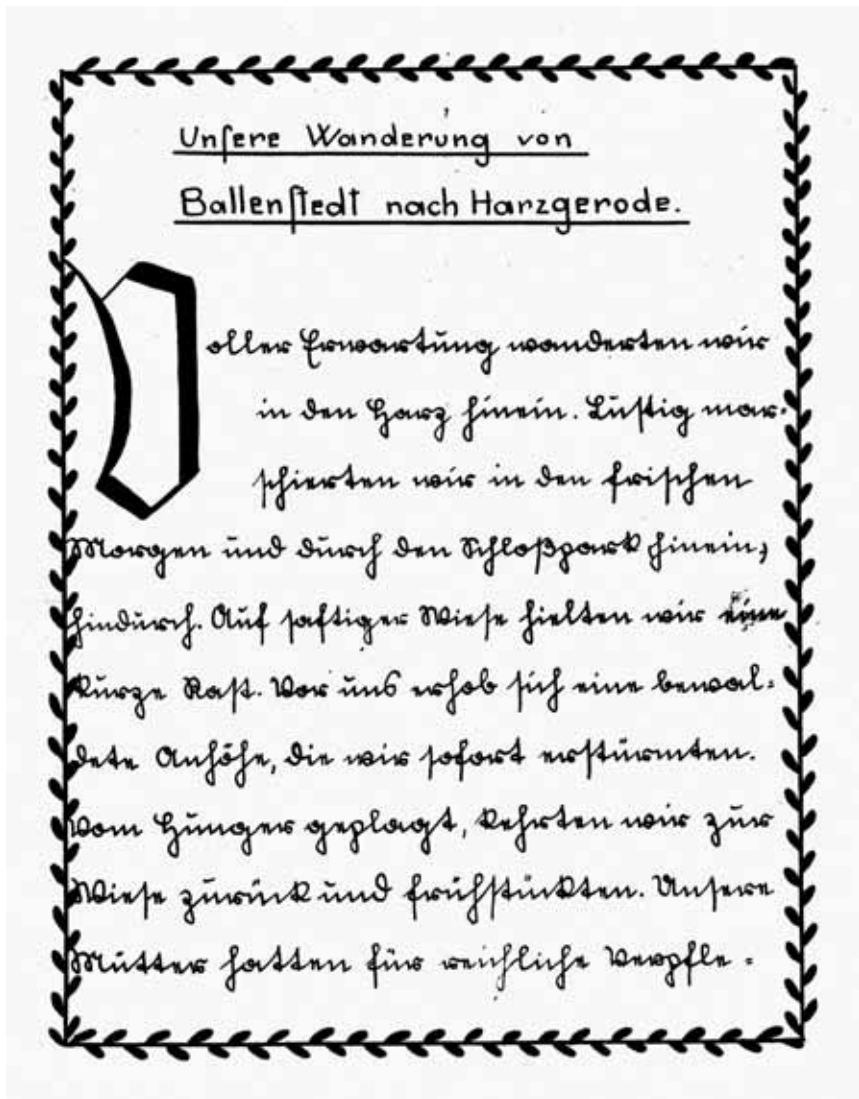 Unſere Wanderung von
Ballenſtedt nach Harzgerode.
Voller Erwartung wanderten wir
in den Harz hinein. Luſtig mar-
ſchierten wir in den friſchen
Morgen und durch den Schloßpark hinein,
hindurch. Auf ſaftiger Wieſe hielten wir eine
kurze Raſt. Vor uns erhob ſich eine bewal-
dete Anhöhe, die wir ſofort erſtürmten.
Vom Hunger geplagt, kehrten wir zur
Wieſe zurück und frühſtückten. Unſere
Mütter hatten für reichliche Verpfle-